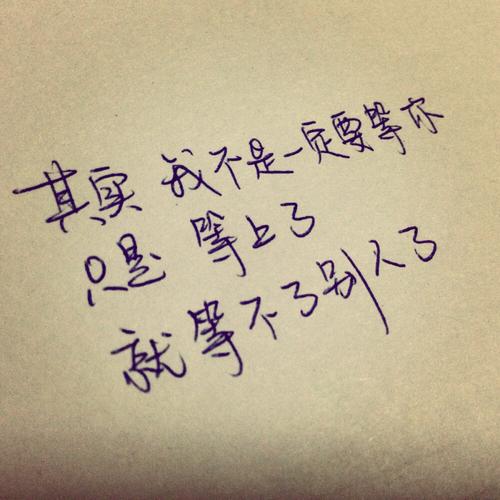 其实 我不是一定要等你
只是 等上了
就等不了别人了